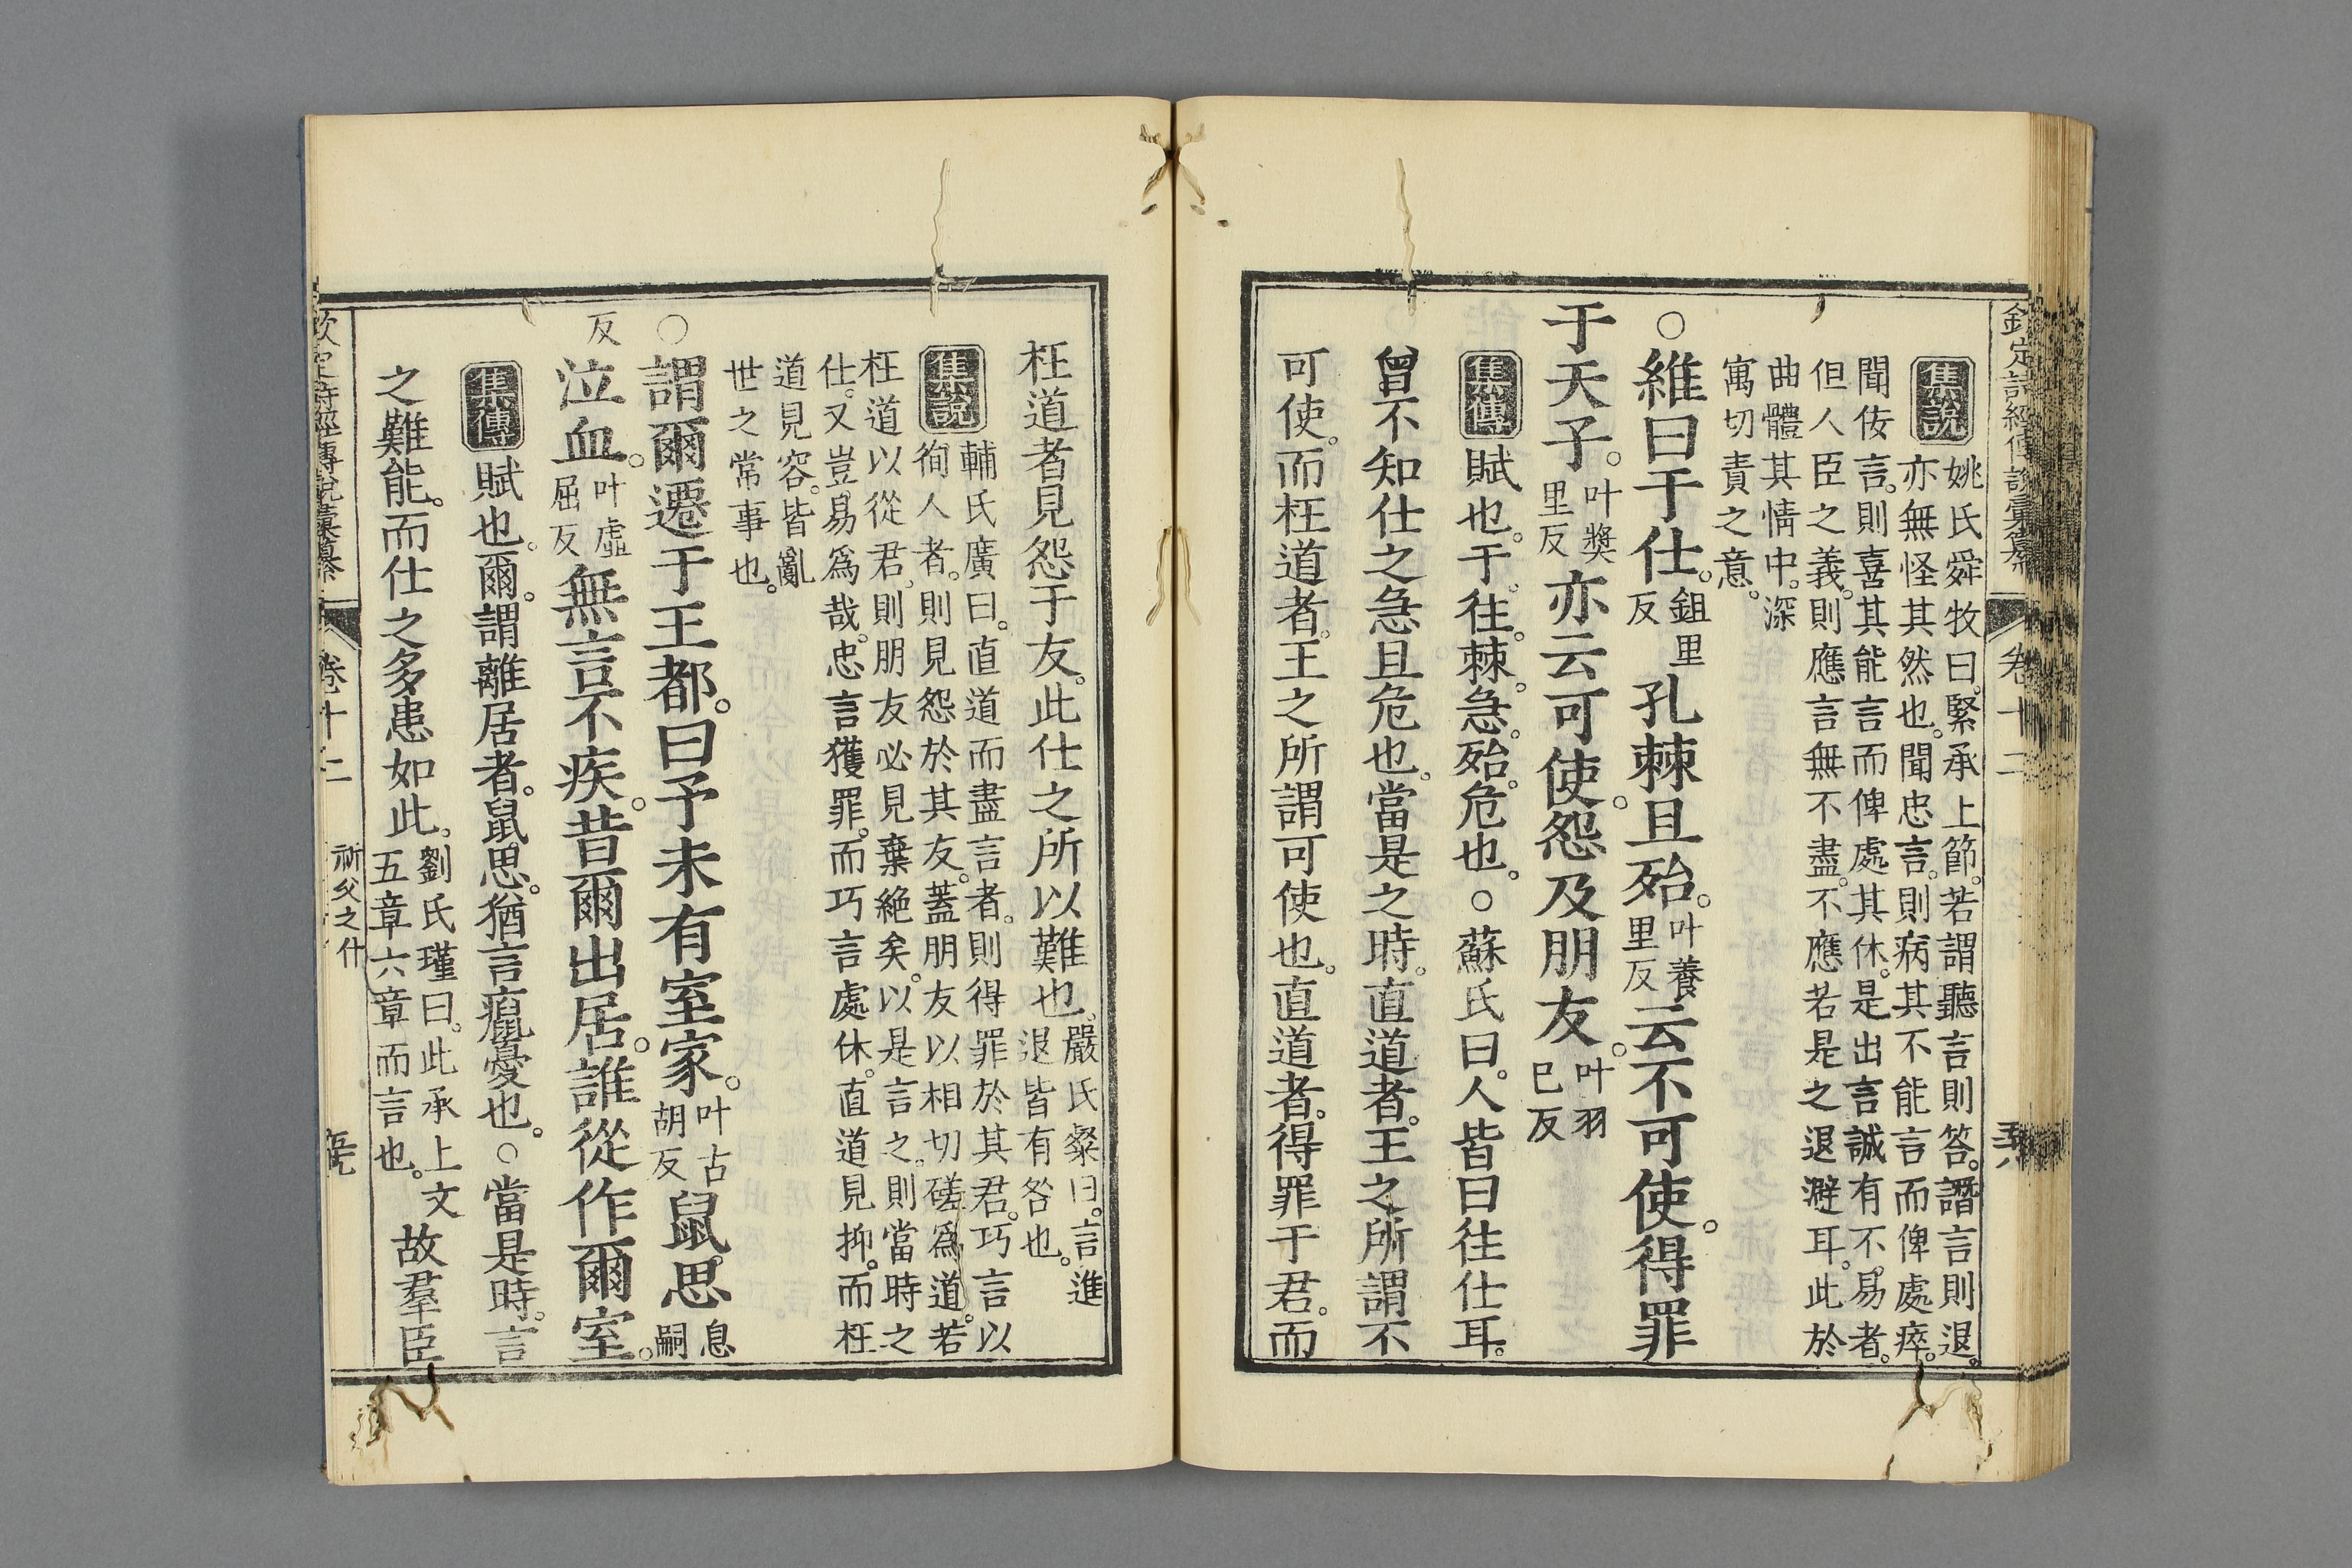 欽定詩經傳說彙纂 卷十二
集說 姚氏舜牧曰。緊承上節。若謂聽言則答。譖言則退。
亦無怪其然也。聞忠言。則病其不能言而俾處瘁。
聞佞言。則喜其能言而俾處其休。是出言誠有不易者。
但人臣之義。則應言無不盡。不應若是之退避耳。此於
曲體其情中。深
寓切責之意。
○維曰于仕。鉏里反孔棘且殆。叶養里反云不可使。得罪
于天子。叶獎里反亦云可使。怨及朋友。叶羽已反
集傳 賦也。于。往。棘。急。殆。危也。○蘇氏曰。人皆曰往仕耳。
曾不知仕之急且危也。當是之時。直道者。王之所謂不
可使。而枉道者。王之所謂可使也。直道者。得罪于君。而
枉道者見怨于友。此仕之所以難也。嚴氏粲曰。言進退皆有咎也。
集說 輔氏廣曰。直道而盡言者。則得罪於其君。巧言以
徇人者。則見怨於其友。蓋朋友以相切磋爲道。若
枉道以從君。則朋友必見棄絶矣。以是言之。則當時之
仕。又豈易爲哉。忠言獲罪。而巧言處休。直道見抑。而枉
道見容。皆亂
世之常事也。
○謂爾遷于王都。曰予未有室家。叶古胡反鼠思息嗣
反泣血。叶虛屈反無言不疾。昔爾出居。誰從作爾室。
集傳 賦也。爾。謂離居者。鼠思。猶言癙憂也。○當是時。言
之難能。而仕之多患如此。劉氏瑾曰。此承上文五章六章而言也。故羣臣
欽定詩經傳說彙纂 卷十二 祈父之什